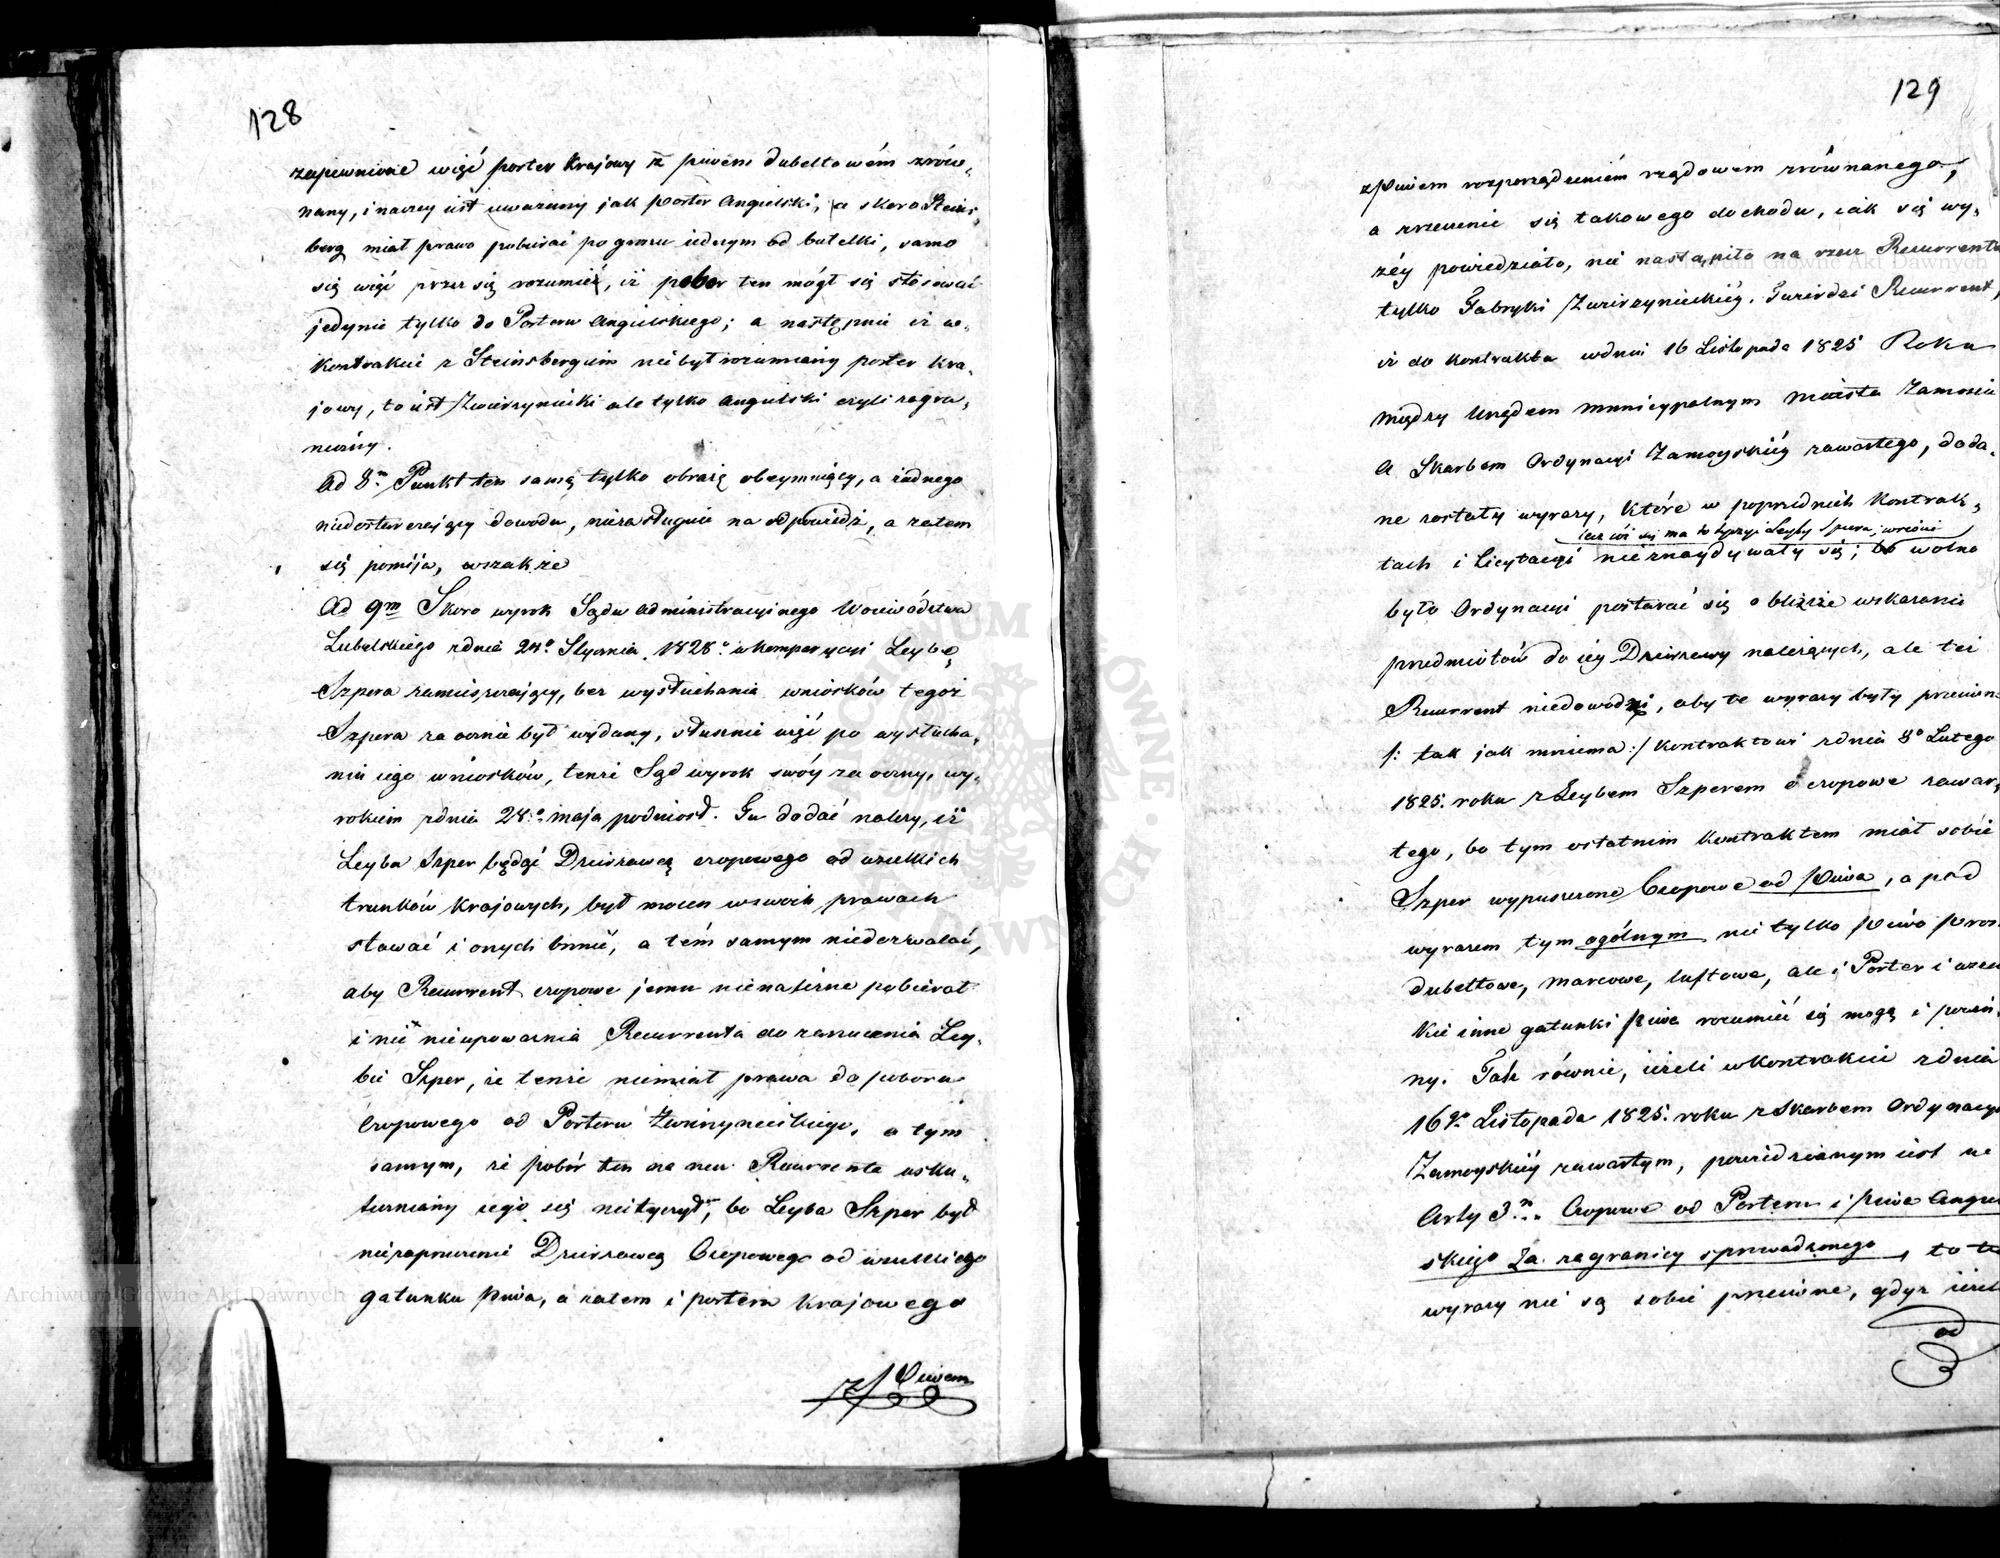 128
zapewnione więc porter krajowy z piwem dubeltowém zrów-
nany, inaczey iest uważany jak Porter Angielski, a skoro Steins-
berg miał prawo pobierać po groszu iednym od butelki, samo
się więc przez się rozumieć, iż pobor ten mógł się stosować
jedynie tylko do Porteru Angielskiego; a następnie iż w
Kontrakcie z Steinsbergiem niebył rozumiany porter kra-
jowy, to iest Zwierzyniecki ale tylko angielski czyli zagra-
niczny.
Ad 8m Punkt ten samą tylko obrazę obeymuiący, a żadnego
niedostarczaiący dowodu, niezasługuie na odpowiedź, a zatem
się pomija, wszakże
Ad 9m Skoro wyrok Sądu Administracyinego Woiewództwa
Lubelskiego zdnia 24o Stycznia 1828o w kompozycyi Leybę
Szpera zamieszczaiący, bez wysłuchania wniosków tegoż
Szpera zaocznie był wydany, słusznie więc po wysłucha-
niu iego wniosków, tenże Sąd wyrok swóy zaoczny, wy-
rokiem zdnia 28o maja podniosł. Tu dodać należy, iż
Leyba Szper będąc Dzierżawcą czopowego od wszelkich
trunków Krajowych, był mocen w swoich prawach
stawać i onych bronić, a tém samym niedozwalać,
aby Recurrent czopowe jemu nienależne pobierał
i nic nieupoważnia Recurrenta do zarzucenia Ley-
bie Szper, że tenże niemiał prawa do poboru
Czopowego od Porteru Zwierzynieckiego, a tym
samym, że pobór ten na rzecz Recurrenta usku-
teczniany iego się nietyczył, bo Leyba Szper był
niezaprzeczenie Dzierżawcą Czopowego od wszelkiego
gatunku piwa, a zatem i porteru krajowego
z Piwem
129
z Piwem rozporządzeniém rządowém zrównanego,
a zrzeczenie się takowego dochodu, iak się wy-
żéy powiedziało, nie nastąpiło na rzecz Recurrenta
tylko Fabryki Zwierzynieckiéy. Twierdzi Recurrent,
iż do kontraktu w dniu 16 Listopada 1825 Roku
między Urzędem municypalnym miasta Zamościa
a Skarbem Ordynacyi Zamoyskiéy zawartego, doda-
ne zostały wyrazy, które w poprzednich Kontrak-
lecz cóż się ma to tyczyć Leyby Szpera, wreście
tach i Licytacyi nieznaydywały się; wolno
było Ordynacyi postarać się o bliższe wskazanie
przedmiotów do iéy Dzierżawy należących, ale też
Recurrent niedowodzi, aby te wyrazy były przeciwne
/: tak jak mniema :/ kontraktowi zdnia 8o Lutego
1825. roku z Leybem Szperem o czopowe zawar-
tego, bo tym ostatnim kontraktem miał sobie
Szper wypuszczone Czopowe od Piwa, a pod
wyrazem tym ogólnym nie tylko Piwo Pros
dubeltowe, marcowe, luftowe, ale i Porter i wszel
kie inne gatunki piwa rozumieć się mogą i powin-
ny. Tak równie, ieżeli w kontrakcie zdnia
16go Listopada 1825. roku z Skarbem Ordynacyi
Zamoyskiéy zawartym, powiedzianym iest we
Arty 3m. Czopowe od Porteru i piwa Angiel
skiego za zagranicy sprowadzonego, to te
wyrazy nie są sobie przeciwne, gdyż ieżeli
od
Archiwum Główne Akt Dawnych